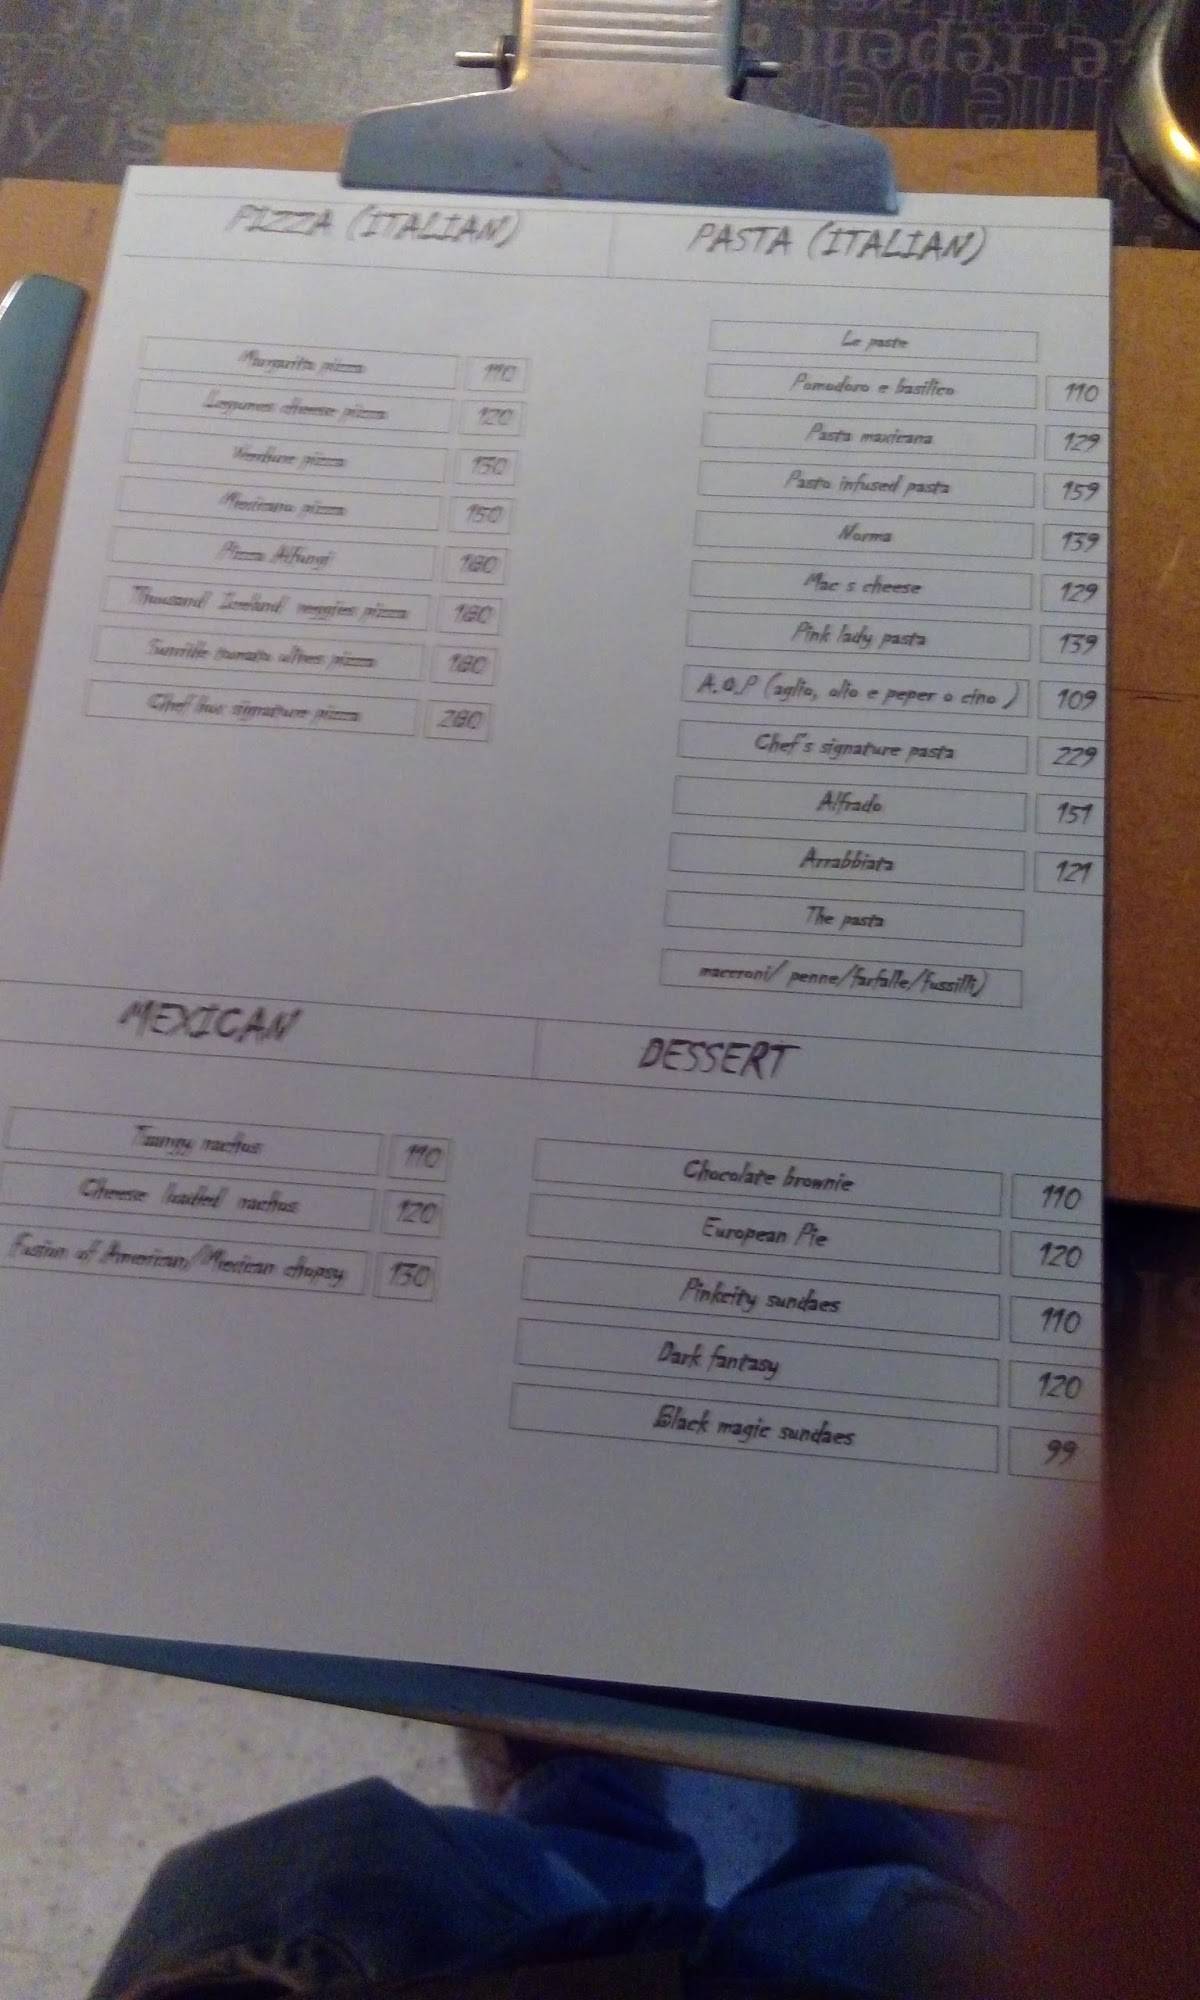 PIZZA (ITALIAN)
Margarita pizza 110
cheese pizza 120
pizza 130
Mexicana pizza 150
Pizza Alfungi 180
Thousand Iceland veggies pizza 180
olives pizza 180
Chef signature pizza 280
PASTA (ITALIAN)
Le paste
Pomodoro e basilico 110
Pasta maxicana 129
Pasta infused pasta 159
Norma 139
Mac s cheese 129
Pink lady pasta 139
A.O.P (aglio, olio e peper o cino ) 109
Chef's signature pasta 229
Alfrado 151
Arrabbiata 121
The pasta
penne/farfalle/fussilli)
MEXICAN
nachos 110
Cheese loaded nachos 120
Fusion of American/Mexican chopsy 130
DESSERT
Chocolate brownie 110
European Pie 120
Pinkcity sundaes 110
Dark fantasy 120
Black magic sundaes 99